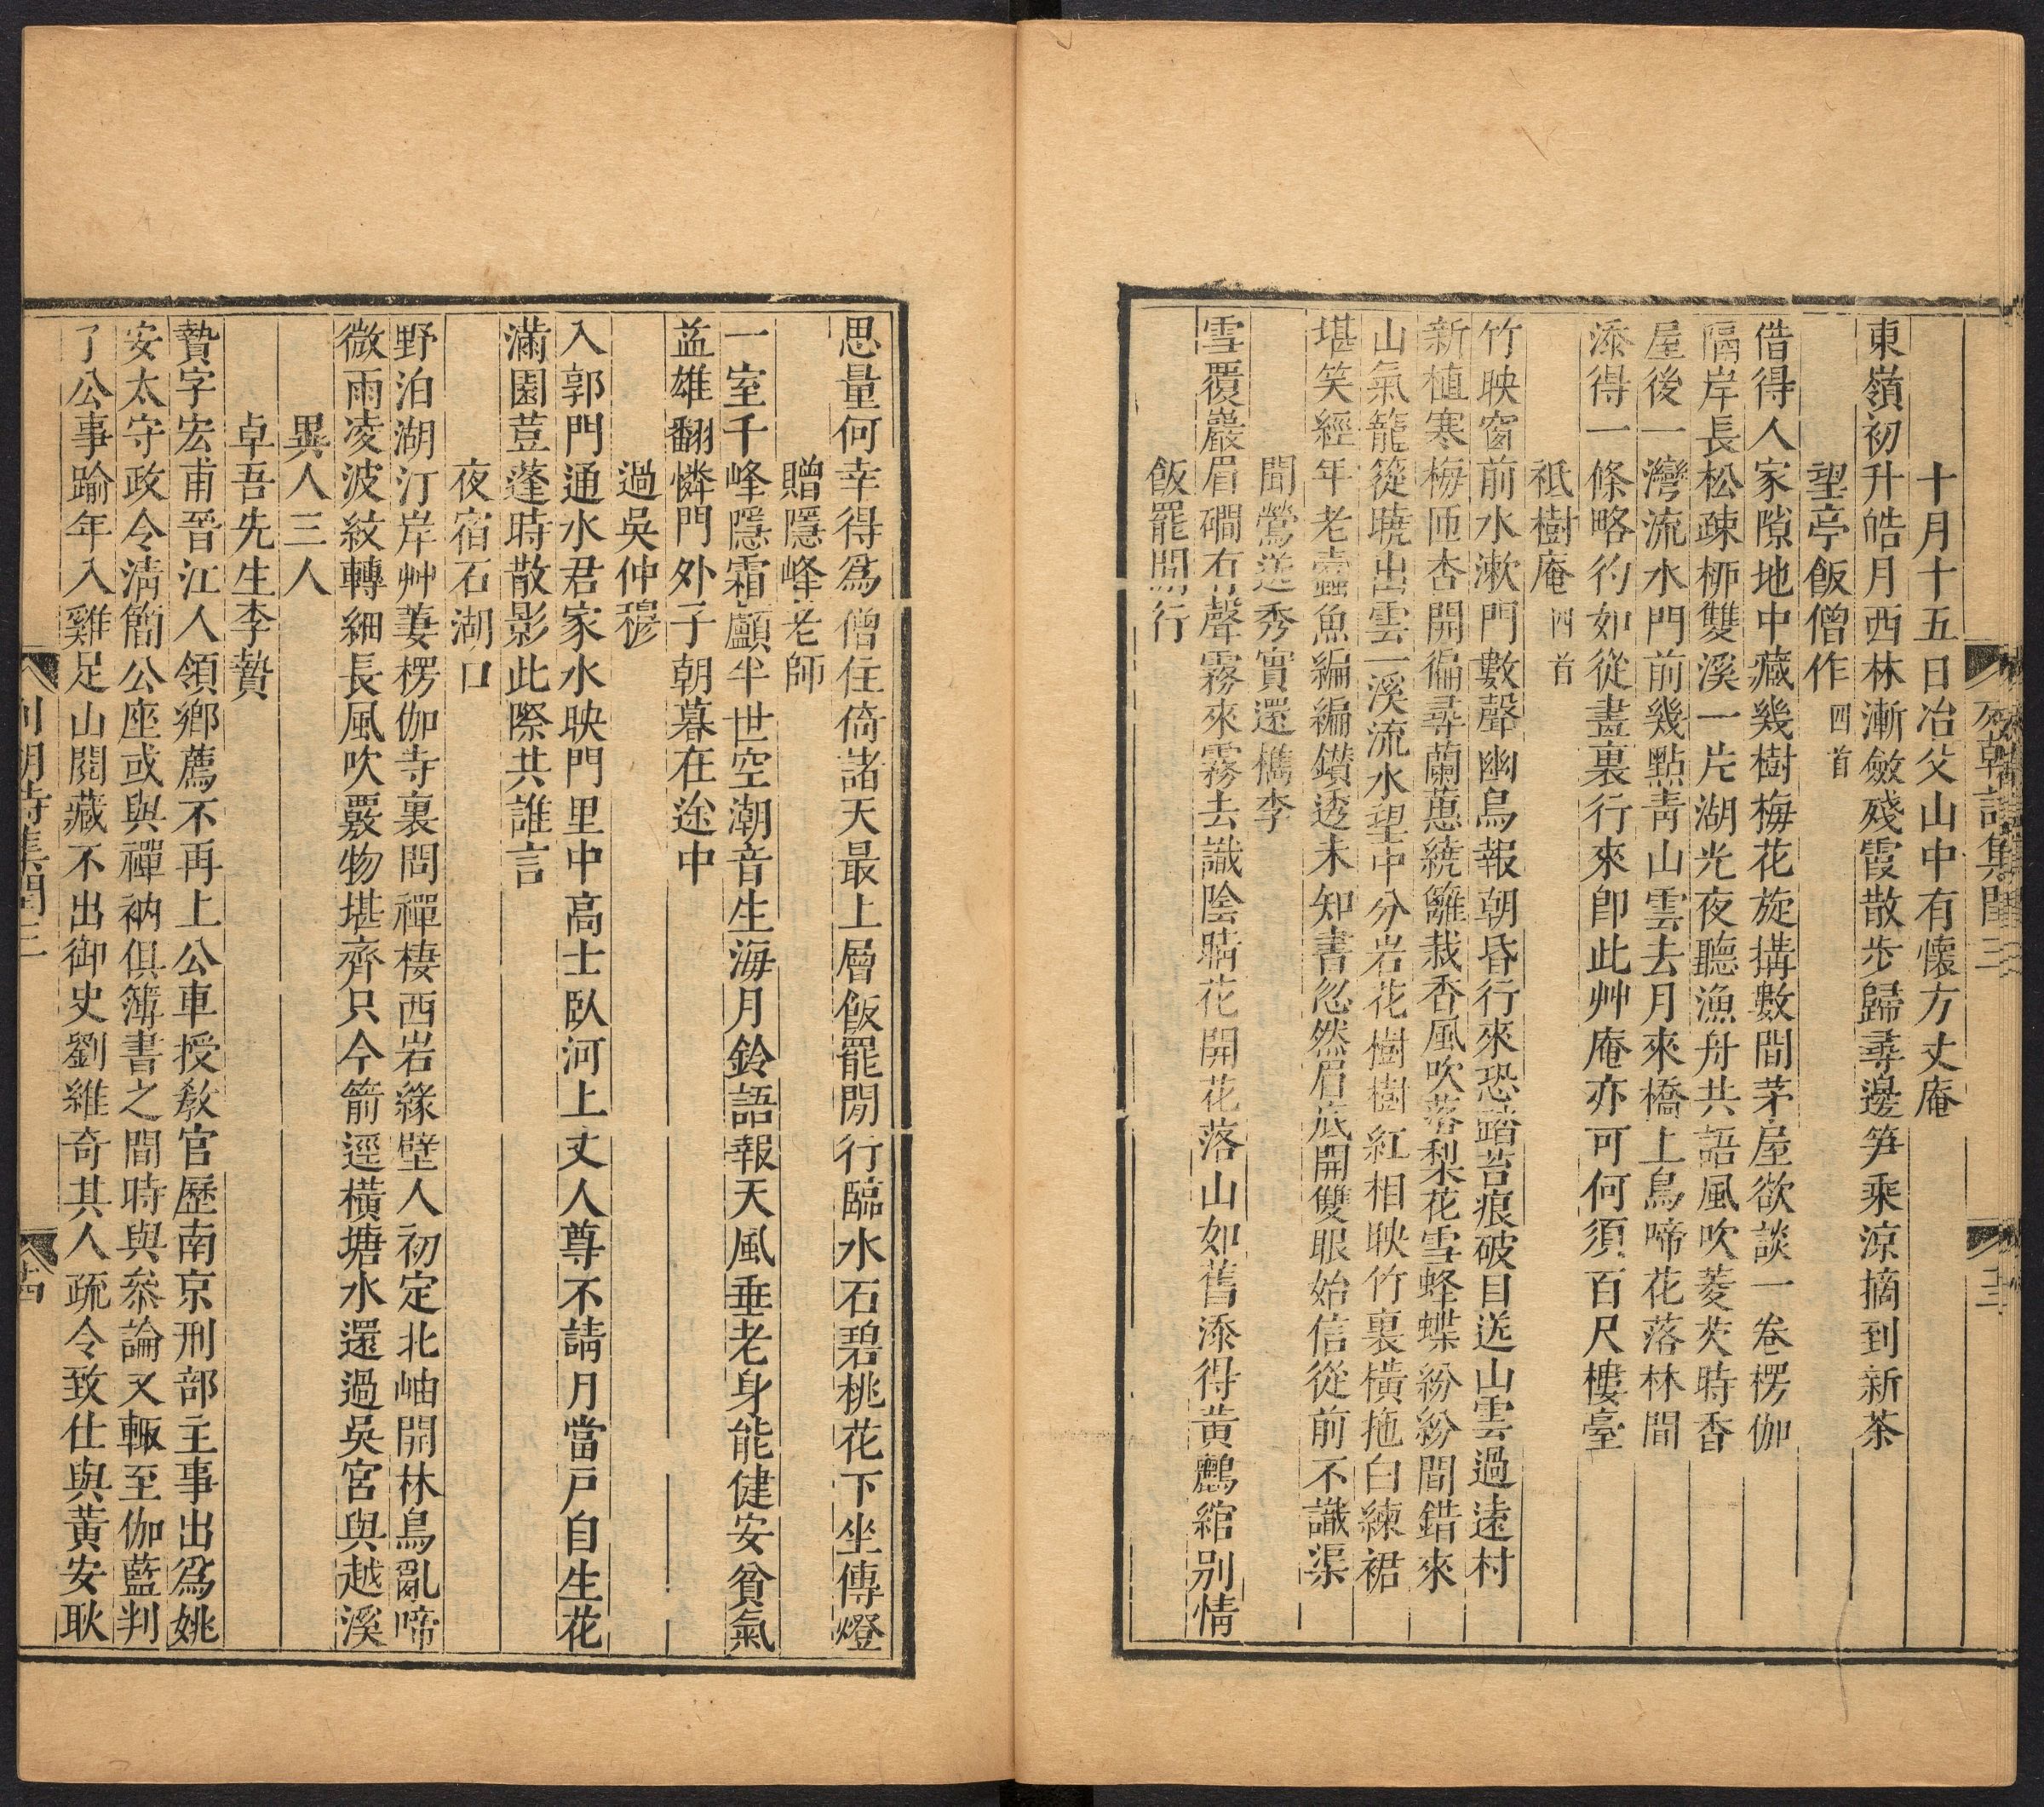 十月十五日冶父山中有懷方丈庵
東嶺初升皓月西林漸斂殘霞散步歸尋邊笋乘涼摘到新茶
望亭飯僧作四首
借得人家隙地中藏幾樹梅花旋搆數間茅屋欲談一卷楞伽
隔岸長松疎栁雙溪一片湖光夜聽漁舟共語風吹菱芡時香
屋後一灣流水門前幾點靑山雲去月來橋上鳥啼花落林間
添得一條略彴如從畫裏行來卽此艸庵亦可何須百尺樓臺
祗樹庵四首
竹映窗前水漱門數聲幽鳥報朝昏行來恐踏苔痕破目送山雲過遠村
新植寒梅匝杏開徧尋蘭蕙繞籬栽香風吹落梨花雪蜂蝶紛紛間錯來
山氣籠蓯曉出雲一溪流水望中分岩花樹樹紅相映竹裏橫拖白練裙
堪笑經年老蠹魚編編鑽透未知書忽然眉底開雙眼始信從前不識渠
聞鶯送秀實還檇李
雪覆巖眉磵有聲霧來霧去識陰晴花開花落山如舊添得黃鸝綰別情
飯罷閒行
思量何幸得爲僧住倚諸天最上層飯罷閒行臨水石碧桃花下坐傳燈
贈隱峰老師
一室千峰隱霜顱半世空潮音生海月鈴語報天風垂老身能健安貧氣
益雄翻憐門外子朝暮在途中
過吳仲穆
入郭門通水君家水映門里中高士臥河上丈人尊不請月當戶自生花
滿園荳蓬時散影此際共誰言
夜宿石湖口
野泊湖汀岸艸萋楞伽寺裏問禪棲西岩緣壁人初定北岫開林鳥亂啼
微雨凌波紋轉細長風吹覈物堪齊只今箭逕橫塘水還過吳宮與越溪
異人三人
卓吾先生李贄
贄字宏甫晉江人領鄉薦不再上公車授敎官歷南京刑部主事出爲姚
安太守政令淸簡公座或與禪衲俱簿書之間時與叅論又輙至伽藍判
了公事踰年入雞足山閱藏不出御史劉維奇其人疏令致仕與黃安耿
列朝詩集閏三
十四